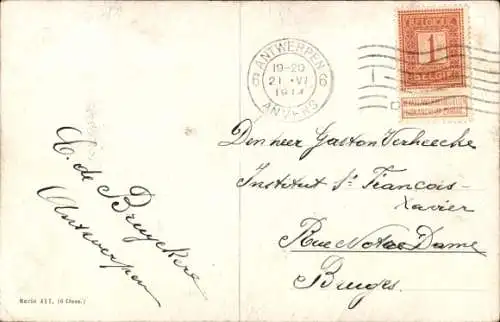 ANTWERPEN
19-20
21 VI
1914
ANVERS
6 6
BELGIQUE
1
BELGIË
Den heer Gaston Verheecke
Institut St François-
Xavier
Rue Notre Dame
Bruges.
C. de Bruyckere
Antwerpen
Serie 411. (6 Cleus.)